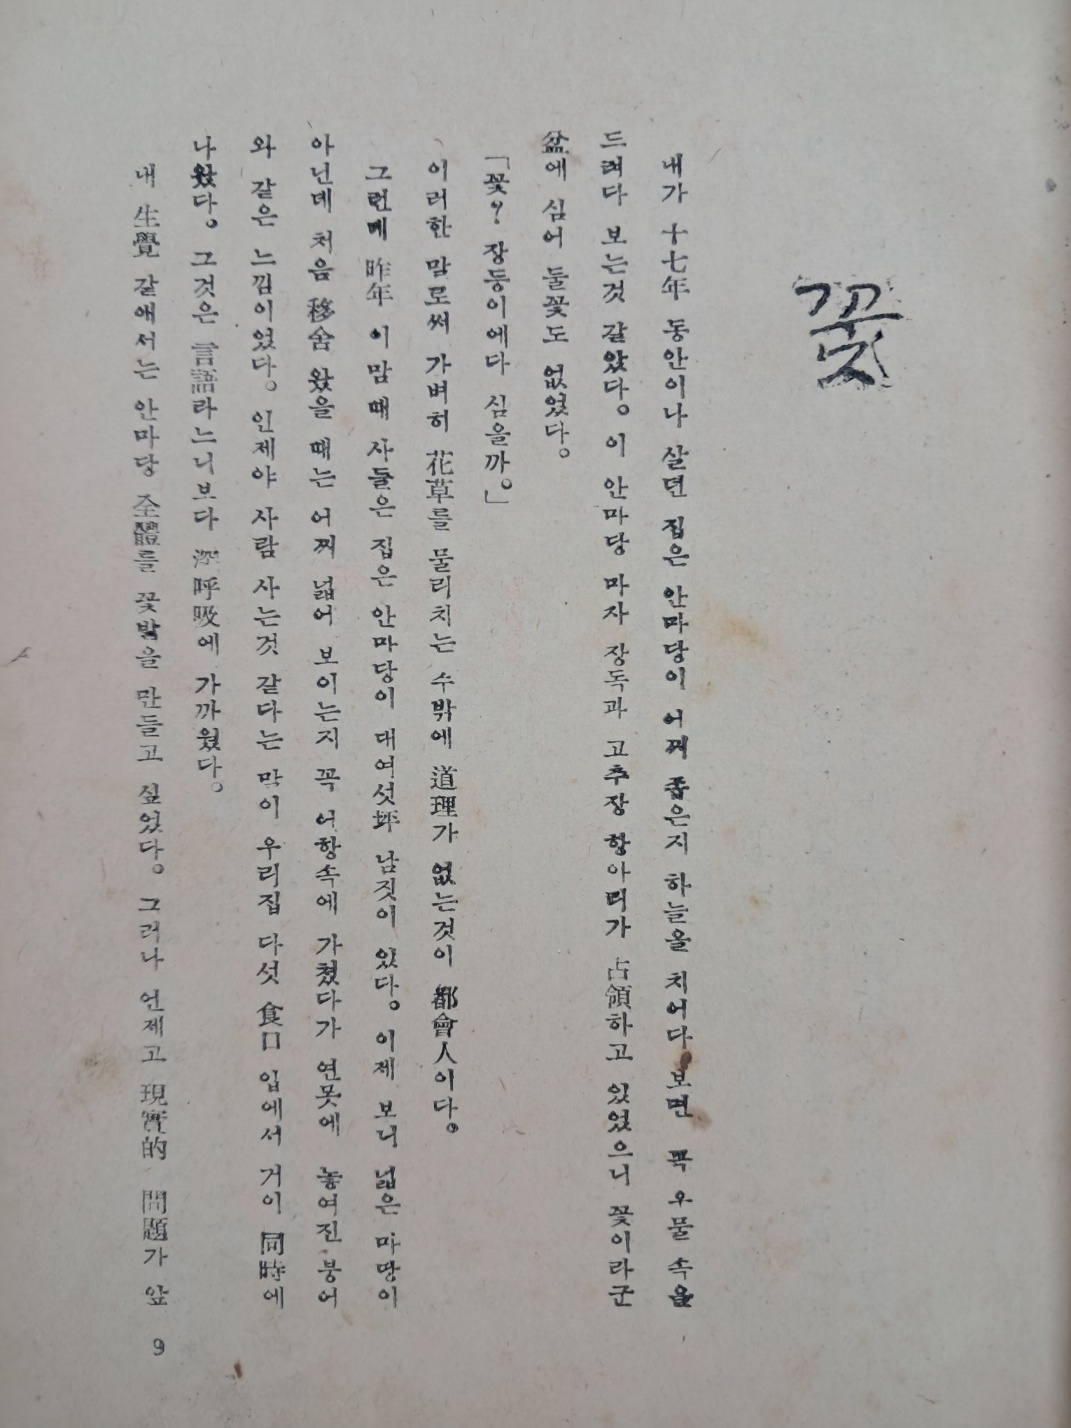 꽃
내가 十七年 동안이나 살던 집은 안마당이 어찌 좁은지 하늘을 치어다 보면 꼭 우물 속을
드려다 보는것 같았다。이 안마당 마자 장독과 고추장 항아리가 占領하고 있었으니 꽃이라군
盆에 심어 둘꽃도 없었다。
「꽃? 장등이에다 심을까。」
이러한 말로써 가벼히 花草를 물리치는 수밖에 道理가 없는것이 都會人이다。
그런데 昨年 이맘때 사들은 집은 안마당이 대여섯坪 남짓이 있다。이제 보니 넓은 마당이
아닌데 처음 移舍 왔을 때는 어찌 넓어 보이는지 꼭 어항속에 가쳤다가 연못에 놓여진 붕어
와 같은 느낌이었다。인제야 사람 사는것 같다는 말이 우리집 다섯 食口 입에서 거이 同時에
나왔다。그것은 言語라느니보다 深呼吸에 가까웠다。
내 生覺 같애서는 안마당 全體를 꽃밭을 만들고 싶었다。그러나 언제고 現實的 問題가 앞
9